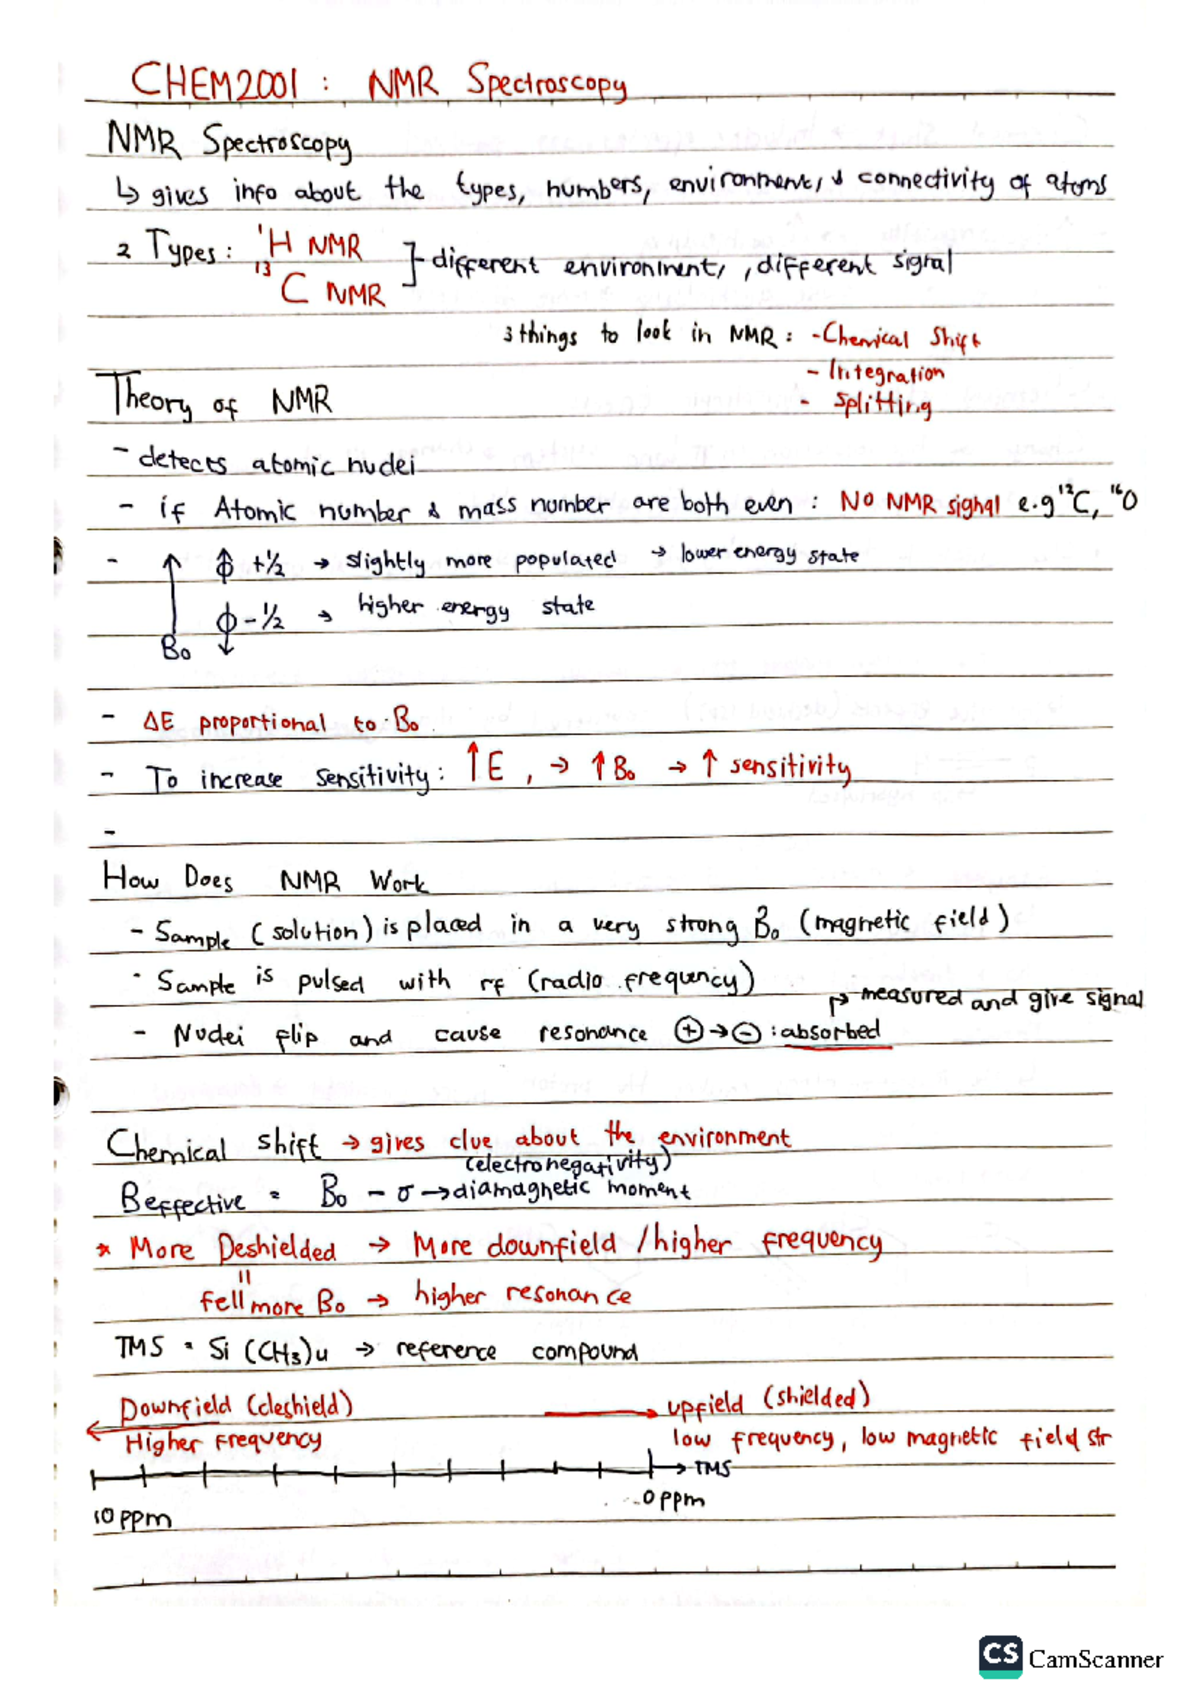 CHEM2001 : NMR Spectroscopy
NMR Spectroscopy
↳ gives info about the types, numbers, environment, & connectivity of atoms
2 Types: ¹H NMR
¹³C NMR
different environment, , different signal
3 things to look in NMR: - Chemical Shift
- Integration
- Splitting
Theory of NMR
- detects atomic nuclei
- if Atomic number & mass number are both even : NO NMR signal e.g ¹²C, ¹⁶O
- ↑ +½ → slightly more populated → lower energy state
-½ → higher energy state
B₀
- ΔE proportional to B₀
- To increase sensitivity: ↑E , → ↑B₀ → ↑ sensitivity
-
How Does NMR Work
- Sample (solution) is placed in a very strong B₀ (magnetic field)
- Sample is pulsed with rf (radio frequency)
↱ measured and give signal
- Nuclei flip and cause resonance ⊕→⊖ : absorbed
Chemical shift → gives clue about the environment
(electronegativity)
Beffective = B₀ - σ → diamagnetic moment
* More Deshielded → More downfield / higher frequency
||
fell more B₀ → higher resonance
TMS = Si (CH₃)u → reference compound
Downfield (deshield)
upfield (shielded)
Higher frequency
low frequency, low magnetic field str
→ TMS
10 ppm
0 ppm
CS CamScanner